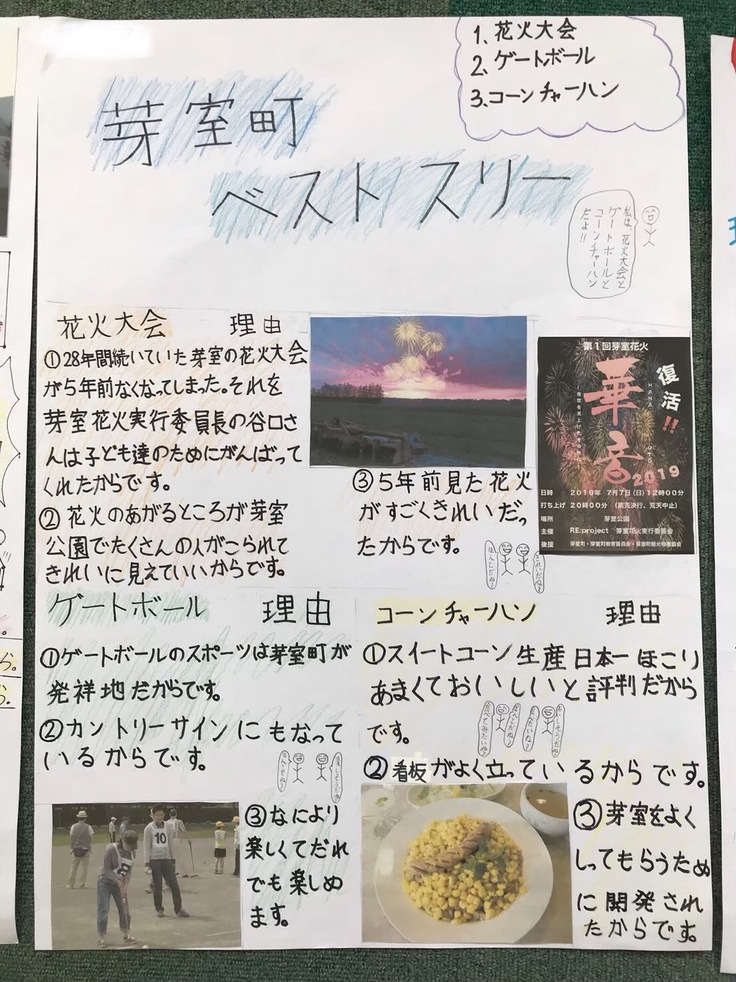 1、花火大会
2、ゲートボール
3、コーンチャーハン
芽室町
ベストスリー
私は、花火大会と
ゲートボールと
コーンチャーハン
だよ!!
花火大会 理由
①28年間続いていた芽室の花火大会
が5年前なくなってしまった。それを
芽室花火実行委員長の谷口さ
んは子ども達のためにがんばって
くれたからです。
②花火のあがるところが芽室
公園でたくさんの人がこられて
きれいに見えていいからです。
③5年前見た花火
がすごくきれいだっ
たからです。
第1回芽室花火
復活!!
華音
HANA
2019
日時 2019年 7月7日(日)12時00分
打ち上げ 20時00分 (雨天決行、荒天中止)
場所 芽室公園
主催 RE:project 芽室花火実行委員会
後援 芽室町・芽室町教育委員会・芽室町観光物産協会
ゲートボール 理由
①ゲートボールのスポーツは芽室町が
発祥地だからです。
②カントリーサインにもなって
いるからです。
③なにより
楽しくてだれ
でも楽しめ
ます。
10
コーンチャーハン 理由
①スイートコーン生産日本一ほこり
あまくておいしいと評判だから
です。
②看板がよく立っているからです。
③芽室をよく
しってもらうため
に開発され
たからです。